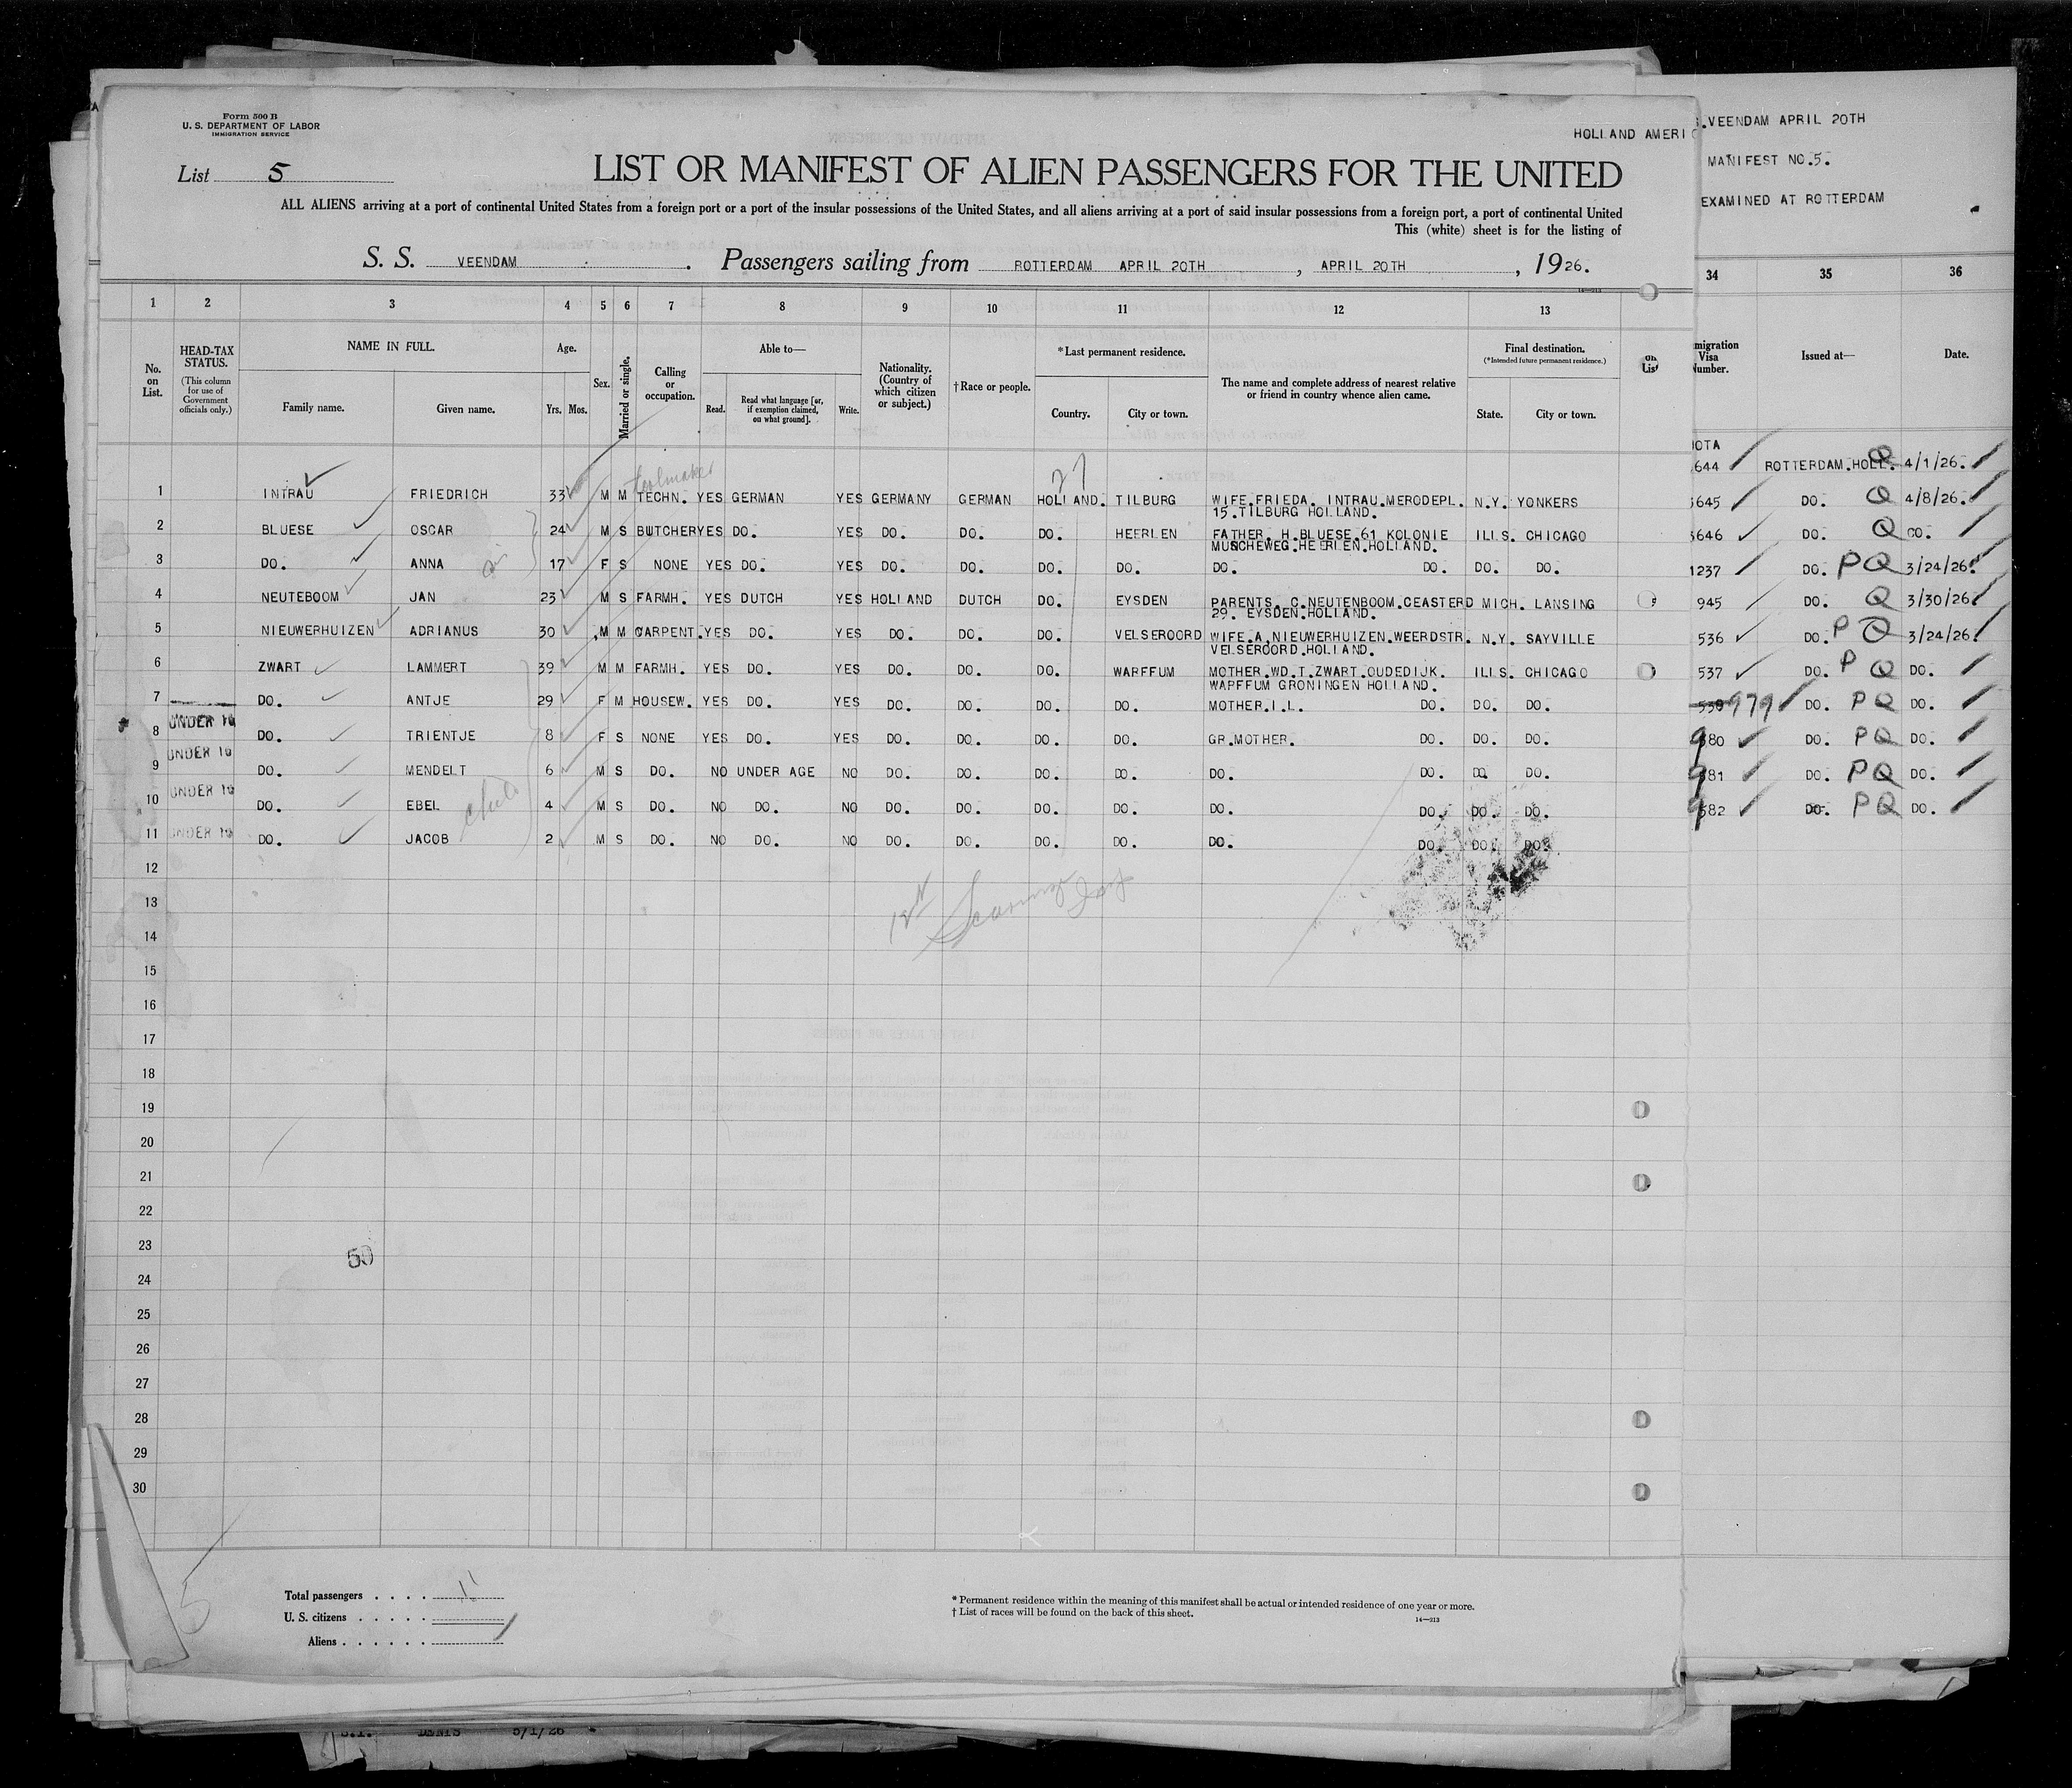 Form 500 B
U. S. DEPARTMENT OF LABOR
IMMIGRATION SERVICE
HOLLAND AMERIC
List 5
LIST OR MANIFEST OF ALIEN PASSENGERS FOR THE UNITED
ALL ALIENS arriving at a port of continental United States from a foreign port or a port of the insular possessions of the United States, and all aliens arriving at a port of said insular possessions from a foreign port, a port of continental United
This (white) sheet is for the listing of
S. S. VEENDAM . Passengers sailing from ROTTERDAM APRIL 20TH , APRIL 20TH , 1926.
VEENDAM APRIL 20TH
MANIFEST NO.5.
EXAMINED AT ROTTERDAM
1 2 3 4 5 6 7 8 9 10 11 12 13 34 35 36
No. on List.
HEAD-TAX STATUS.
(This column for use of Government officials only.)
NAME IN FULL.
Family name. Given name.
Age.
Yrs. Mos.
Sex.
Married or single.
Calling or occupation.
Able to—
Read. Read what language [or, if exemption claimed, on what ground]. Write.
Nationality. (Country of which citizen or subject.)
†Race or people.
*Last permanent residence.
Country. City or town.
The name and complete address of nearest relative or friend in country whence alien came.
Final destination.
(*Intended future permanent residence.)
State. City or town.
on List
migration Visa Number.
Issued at—
Date.
toolmaker
27
1 INTRAU FRIEDRICH 33 M M TECHN. YES GERMAN YES GERMANY GERMAN HOLLAND. TILBURG WIFE.FRIEDA. INTRAU.MERODEPL. N.Y. YONKERS
15.TILBURG HOLLAND.
2 BLUESE OSCAR 24 M S BUTCHER YES DO. YES DO. DO. DO. HEERLEN FATHER. H.BLUESE.61 KOLONIE ILLS. CHICAGO
MUSCHEWEG.HEERLEN.HOLLAND.
3 DO. ANNA 17 F S NONE YES DO. YES DO. DO. DO. DO. DO. DO. DO. DO.
4 NEUTEBOOM JAN 23 M S FARMH. YES DUTCH YES HOLLAND DUTCH DO. EYSDEN PARENTS. C.NEUTENBOOM.CEASTERD MICH. LANSING
29. EYSDEN.HOLLAND.
5 NIEUWERHUIZEN ADRIANUS 30 M M CARPENT. YES DO. YES DO. DO. DO. VELSEROORD WIFE.A.NIEUWERHUIZEN.WEERDSTR. N.Y. SAYVILLE
VELSEROORD.HOLLAND.
6 ZWART LAMMERT 39 M M FARMH. YES DO. YES DO. DO. DO. WARFFUM MOTHER.WD.T.ZWART.OUDEDIJK. ILLS. CHICAGO
WARFFUM GRONINGEN HOLLAND.
7 DO. ANTJE 29 F M HOUSEW. YES DO. YES DO. DO. DO. DO. MOTHER.I.L. DO. DO. DO.
8 UNDER 16 DO. TRIENTJE 8 F S NONE YES DO. YES DO. DO. DO. DO. GR.MOTHER. DO. DO. DO.
9 UNDER 16 DO. MENDELT 6 M S DO. NO UNDER AGE NO DO. DO. DO. DO. DO. DO. DO. DO.
10 UNDER 16 DO. EBEL 4 M S DO. NO DO. NO DO. DO. DO. DO. DO. DO. DO. DO.
11 UNDER 16 DO. JACOB 2 M S DO. NO DO. NO DO. DO. DO. DO. DO. DO. DO. DO.
child
644 ROTTERDAM.HOLL. Q 4/1/26.
645 DO. Q 4/8/26.
646 DO. Q
1237 DO. P Q 3/24/26.
945 DO. Q 3/30/26.
536 DO. P Q 3/24/26.
537 DO. P Q DO.
979 DO. P Q DO.
980 DO. P Q DO.
981 DO. P Q DO.
982 DO. P Q DO.
12
13
14
15
16
17
18
19
20
21
22
23
24
25
26
27
28
29
30
50
5
Total passengers . . . . 11
U. S. citizens . . . . .
Aliens . . . . . .
* Permanent residence within the meaning of this manifest shall be actual or intended residence of one year or more.
† List of races will be found on the back of this sheet.
14—213
S.I. DENIS 5/1/26